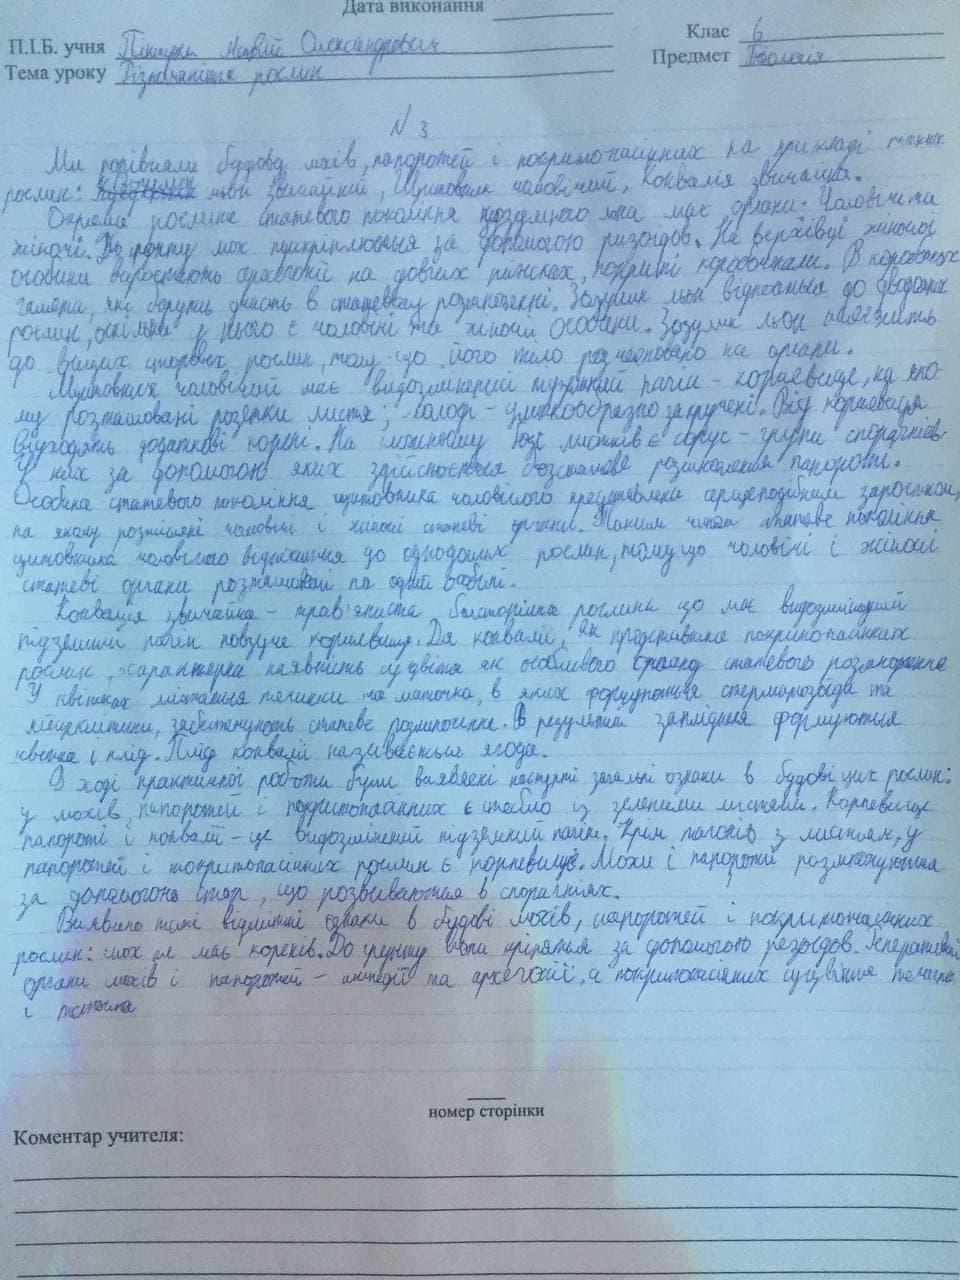 Дата виконання
П.І.Б. учня Матвій Олександрович
Клас 6
Тема уроку Різноманіття рослин
Предмет Біологія
№ 3
Ми порівняли будову мохів, папоротей і покритонасінних на прикладі таких
рослин: льон звичайний, Щитовник чоловічий, Конвалія звичайна.
Окрема рослина статевого покоління має органи: Чоловічі та
жіночі. До ґрунту мох прикріплюється за допомогою ризоїдів. На верхівці жіночої
особини виростають архегонії на довгих ніжках, коробочками. В коробочках
гамети, які беруть участь в статевому розмноженні. Зозулин льон відноситься до дводомних
рослин, оскільки у нього є чоловічі та жіночі особини. Зозулин льон належить
до вищих спорових рослин, тому що його тіло розчленовано на органи.
Щитовник чоловічий має видозмінений підземний пагін - кореневище, на яко-
му розташовані розетки листя; молоді - закручені. Від кореневища
відходять додаткові корені. На боці листків є сорус - групи спорангіїв
У них за допомогою яких здійснюється безстатеве розмноження папороті.
Особина статевого покоління щитовника чоловічого представлена серцеподібним заростком,
на якому розміщені чоловічі і жіночі статеві органи. Таким чином статеве покоління
щитовника чоловічого відноситься до однодомних рослин, тому що чоловічі і жіночі
статеві органи розташовані на одній особині.
Конвалія звичайна - трав'яниста, багаторічна рослина що має видозмінений
підземний пагін повзуче кореневище. Для конвалії, як представника покритонасінних
рослин, характерна наявність суцвіття як особливого статевого розмноження
У квітках містяться тичинки та маточка, в яких формуються сперматозоїди та
яйцеклітини, забезпечують статеве розмноження. В результаті запліднення формуються
квітка і плід. Плід конвалії називається ягода.
В ході практичної роботи були виявлені наступні загальні ознаки в будові цих рослин:
у мохів, папоротей і покритонасінних є стебло із зеленими листками. Кореневище
папороті і конвалії - це видозмінений підземний пагін. Крім пагонів з листям, у
папоротей і покритонасінних рослин є кореневище. Мохи і папороті розмножуються
за допомогою спор, що розвиваються в спорангіях.
Виявлено такі відмінні ознаки в будові мохів, папоротей і покритонасінних
рослин: мох не має коренів. До ґрунту вони кріпляться за допомогою резоїдов.
органи мохів і папоротей - та архегонії, а покритонасінних суцвіття тичинка
і маточка
номер сторінки
Коментар учителя: